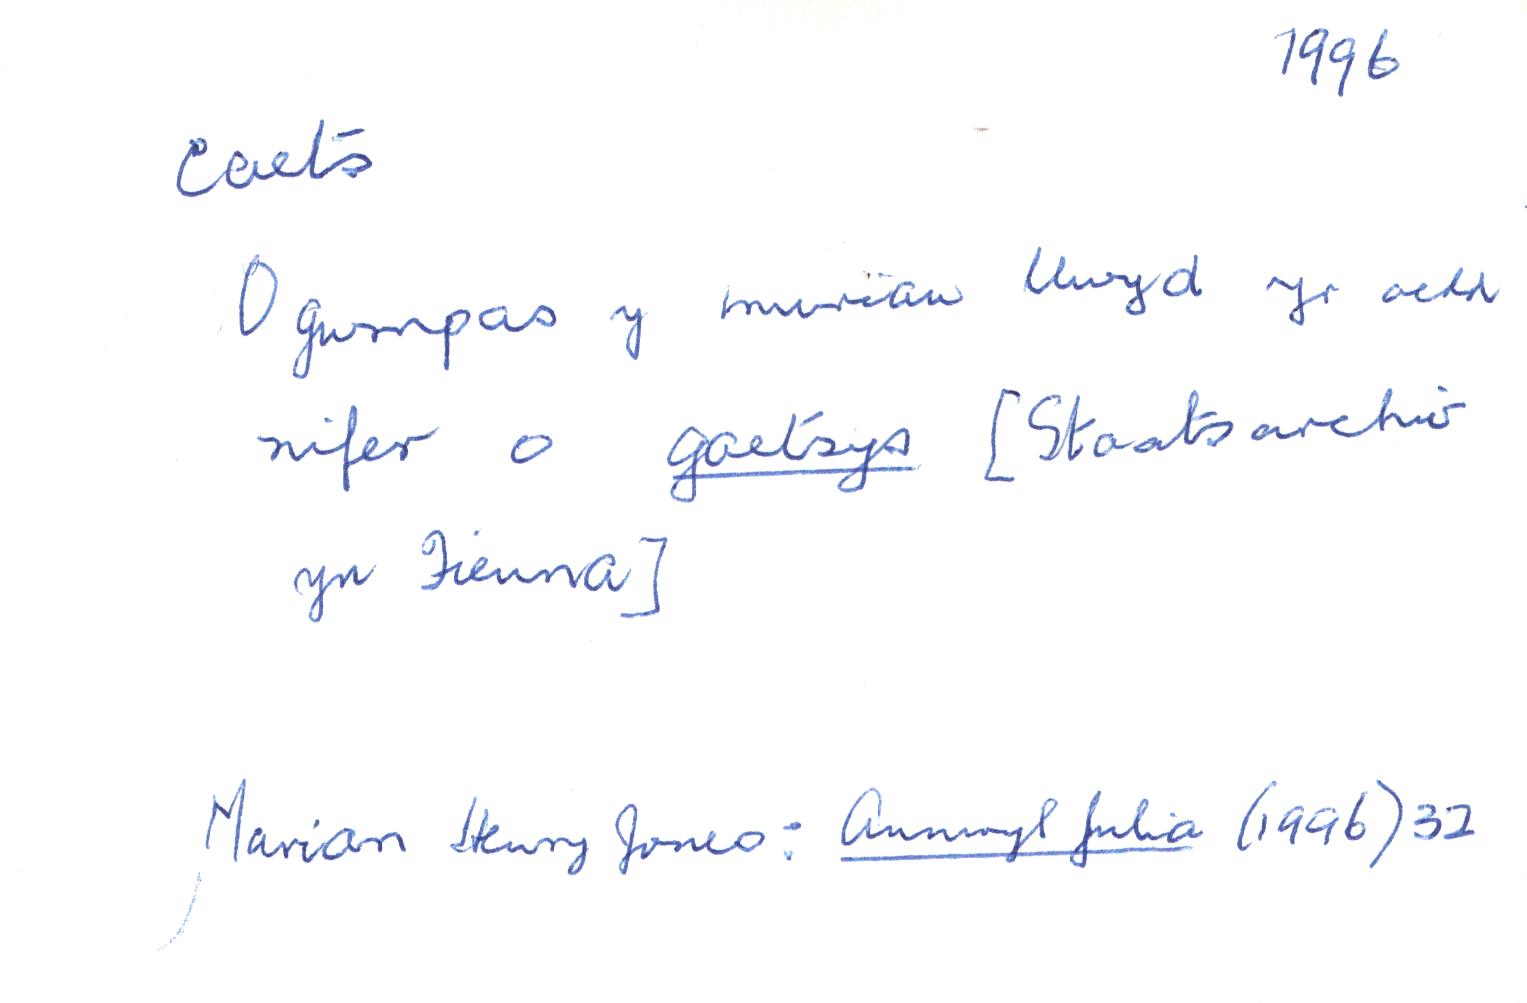 1996
caets
O gwmpas y muriau llwyd yr oedd
nifer o gaetsys [Staatsarchiv
yn Fienna]
Marian Henry Jones: Annwyl Julia (1996) 32